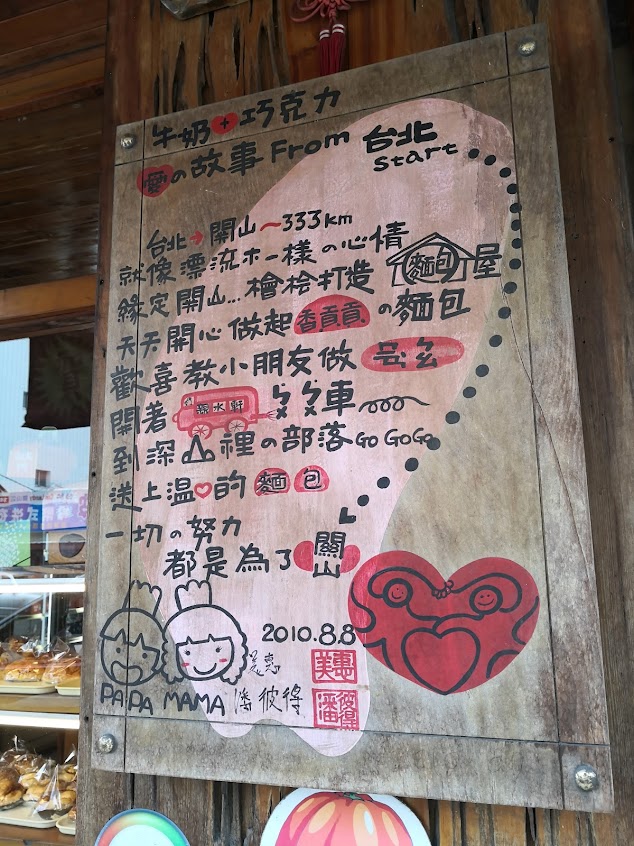 牛奶+巧克力
愛の故事 From 台北
start
台北→関山~333km
就像漂流木一樣の心情
緣定関山...檜桧打造 麵包屋
天天開心做起香貢貢の麵包
歡喜教小朋友做
開著 ㄅㄅ車
到深山裡の部落GO GOGO
送上溫♥的麵包
一切の努力
都是為了 關山
2010.8.8
PAPA MAMA 潘彼得